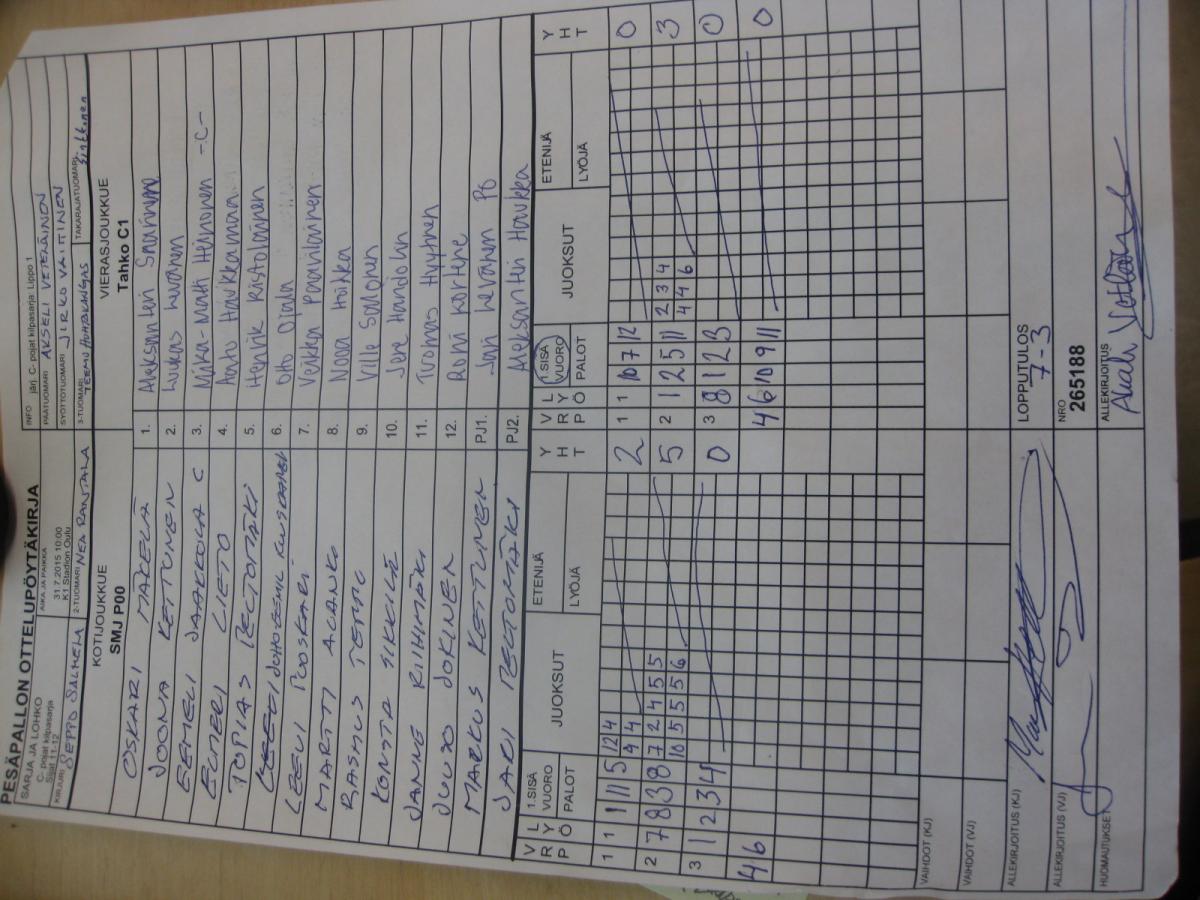 PESÄPALLON OTTELUPÖYTÄKIRJA
SARJA JA LOHKO
C- pojat kilpasarja
Sijat 11-12
AIKA JA PAIKKA
31.7.2015 10:00
K1 Stadion Oulu
INFO järj. C- pojat kilpasarja: Lippo 1
PÄÄTUOMARI AKSELI VETERÄINEN
SYÖTTÖTUOMARI JIRKO VÄITINEN
KIRJURI SEPPO SALMELA
2-TUOMARI NEA RANTALA
3-TUOMARI TEEMU HUHTAKANGAS
TAKARAJATUOMARI
KOTIJOUKKUE
SMJ P00
VIERASJOUKKUE
Tahko C1
OSKARI MÄKELÄ 1. Aleksanteri Saarinen
JOONA KETTUNEN 2. Luukas Levänen
EEMELI JAAKKOLA C 3. Miika-Matti Heinonen -C-
ELMERI LIETO 4. Aatu Haukkamaa
TOPIAS PELTOMÄKI 5. Henrik Ristolainen
6. Otto Ojala
LEEVI POOSKARI 7. Veikka Paavilainen
MARTTI ALANKO 8. Nooa Hoikka
RASMUS TERMO 9. Ville Salonen
KONSTA SIKKILÄ 10. Jere Handolin
JANNE RIIHIMÄKI 11. Tuomas Hyyhnen
JUUSO JOKINEN 12. Roni Kortene
MARKUS KETTUNEN PJ1. Jari Levänen PÖ
JARI PELTOMÄKI PJ2. Aleksanteri Haukka
V R L Y P Ö 1.SISÄ VUORO PALOT JUOKSUT ETENIJÄ LYÖJÄ Y H T
V R L Y P Ö 1.SISÄ VUORO PALOT JUOKSUT ETENIJÄ LYÖJÄ Y H T
1 1 1 11 5 1 2 4 2 1 1 10 7 12 0
4 4
2 7 8 3 8 7 2 4 5 5 5 2 1 2 5 11 2 3 4 3
10 5 5 5 6 4 4 6
3 1 2 3 4 0 3 8 1 2 3 0
4 6 4 6 10 9 11 0
VAIHDOT (KJ)
VAIHDOT (VJ)
ALLEKIRJOITUS (KJ)
LOPPUTULOS
7-3
ALLEKIRJOITUS (VJ)
NRO
265188
HUOMAUTUKSET
ALLEKIRJOITUS